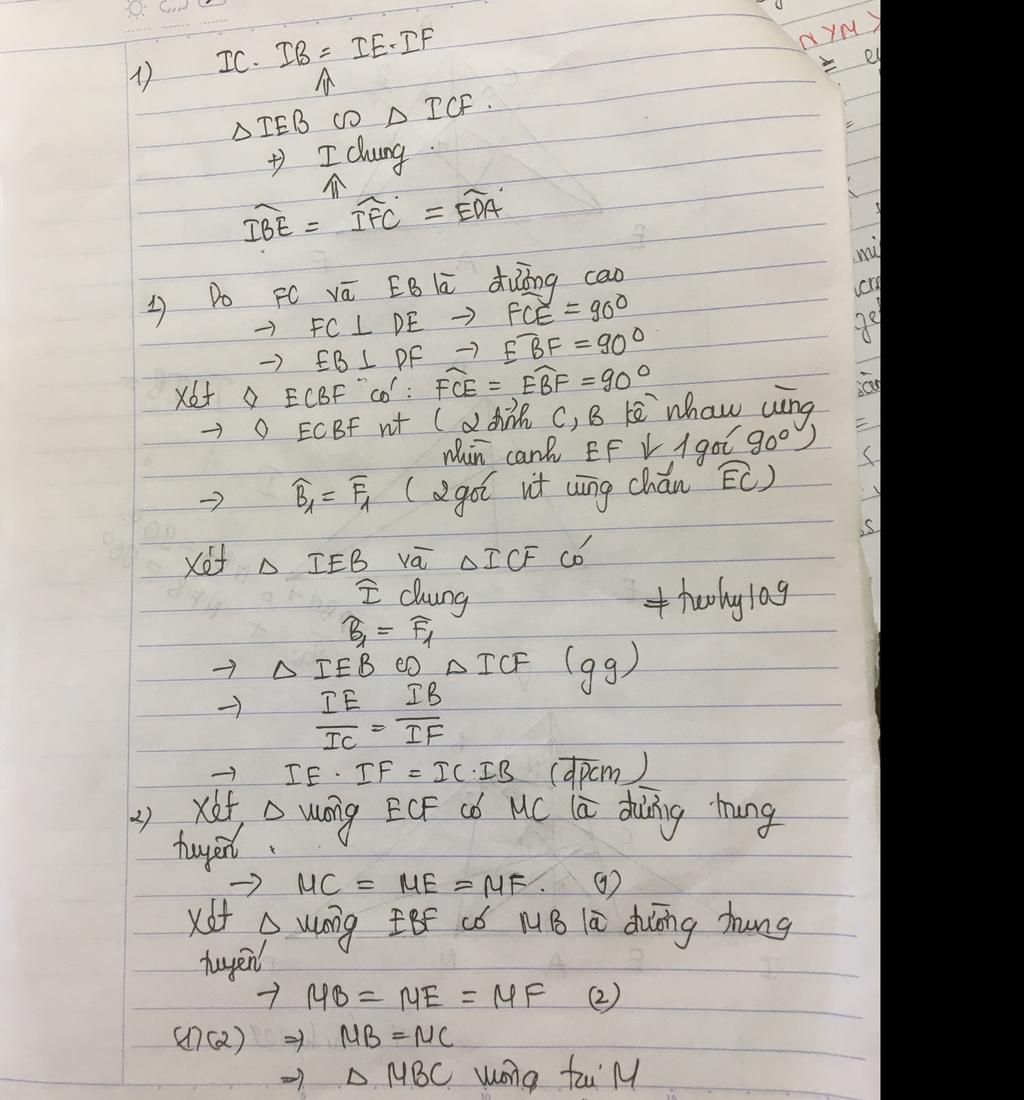 1) IC. IB = IE.IF
⇑
Δ IEB ∽ Δ ICF.
+) I chung.
⇑
IBE = IFC = EDA
1) Do FC và EB là đường cao
→ FC ⊥ DE → FCE = 90°
→ EB ⊥ DF → EBF = 90°
Xét ◊ ECBF có: FCE = EBF = 90°
→ ◊ ECBF nt ( 2 đỉnh C, B kề nhau cùng
nhìn cạnh EF ↓ 1 góc 90°)
→ B̂₁ = F̂₁ ( 2 góc nt cùng chắn EC)
Xét Δ IEB và Δ ICF có
Î chung
B̂₁ = F̂₁
→ Δ IEB ∽ Δ ICF (gg)
→ IE/IC = IB/IF
→ IE . IF = IC.IB (đpcm)
2) Xét Δ vuông ECF có MC là đường trung
tuyến.
→ MC = ME = MF. (1)
Xét Δ vuông EBF có MB là đường trung
tuyến
→ MB = ME = MF (2)
(1)(2) ⇒ MB = MC
⇒ Δ MBC vuông tại M